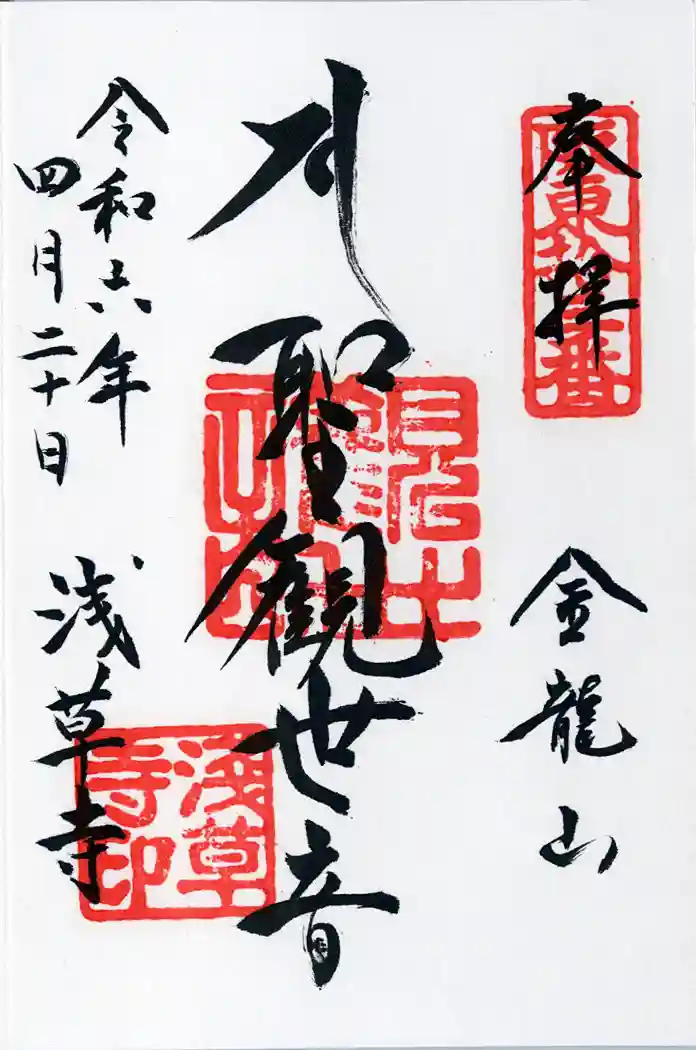 奉拝
坂東拾三番
金龍山
聖觀世音
令和六年
四月二十日
浅草寺
浅草寺印